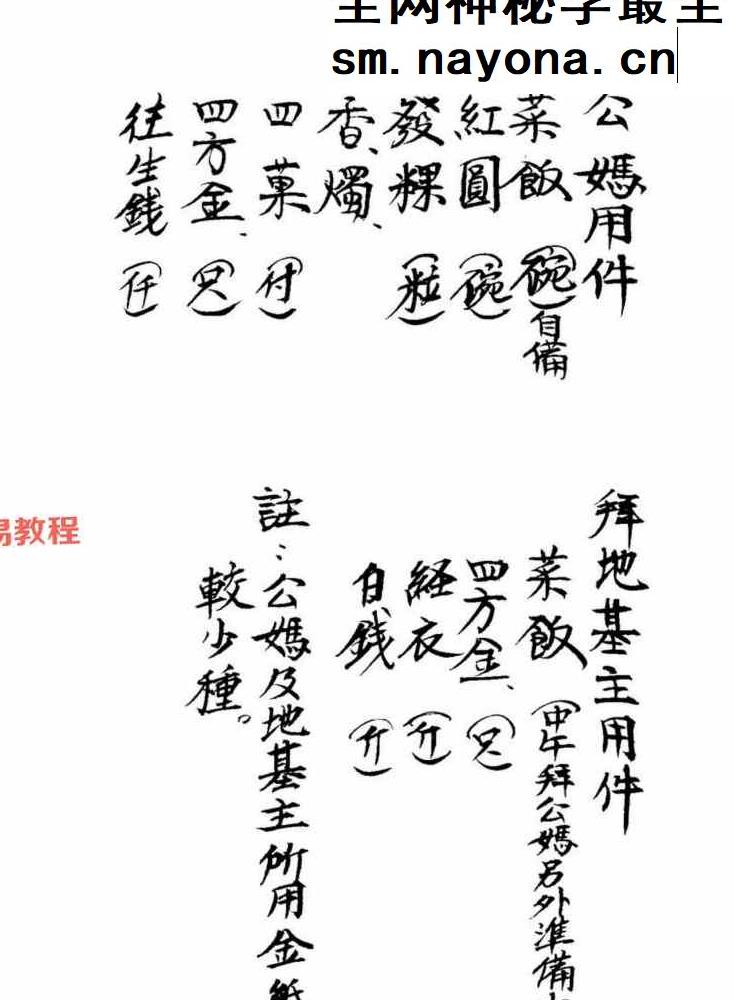 全网神秘学最全
sm.nayona.cn
公媽用件
菜飯(碗)自備
紅圓(碗)
發粿(粒)
香、燭、
四菓(付)
四方金、(只)
往生錢(仟)
易教程
拜地基主用件
菜飯(中午拜公媽另外準備
四方金、(只)
経衣(介)
白錢(介)
註:公媽及地基主所用金紙
較少種。